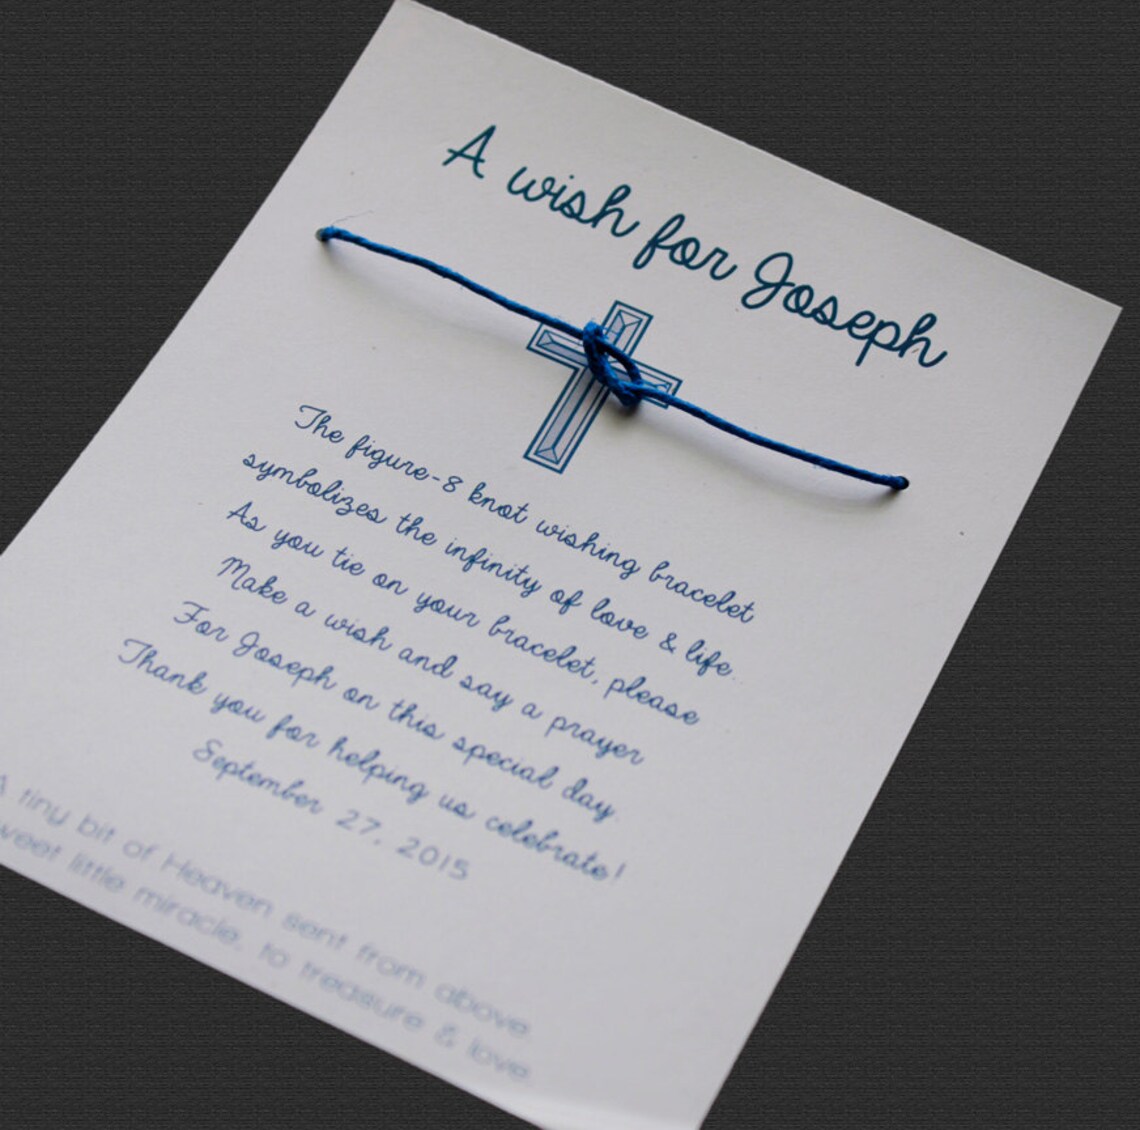 A wish for Joseph
The figure-8 knot wishing bracelet
symbolizes the infinity of love & life.
As you tie on your bracelet, please
Make a wish and say a prayer
For Joseph on this special day.
Thank you for helping us celebrate!
September 27, 2015
A tiny bit of Heaven sent from above.
weet little miracle, to treasure & love.